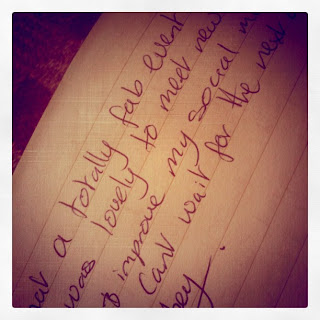 a totally fab event
was lovely to meet new
improve my social m
Cant wait for the next